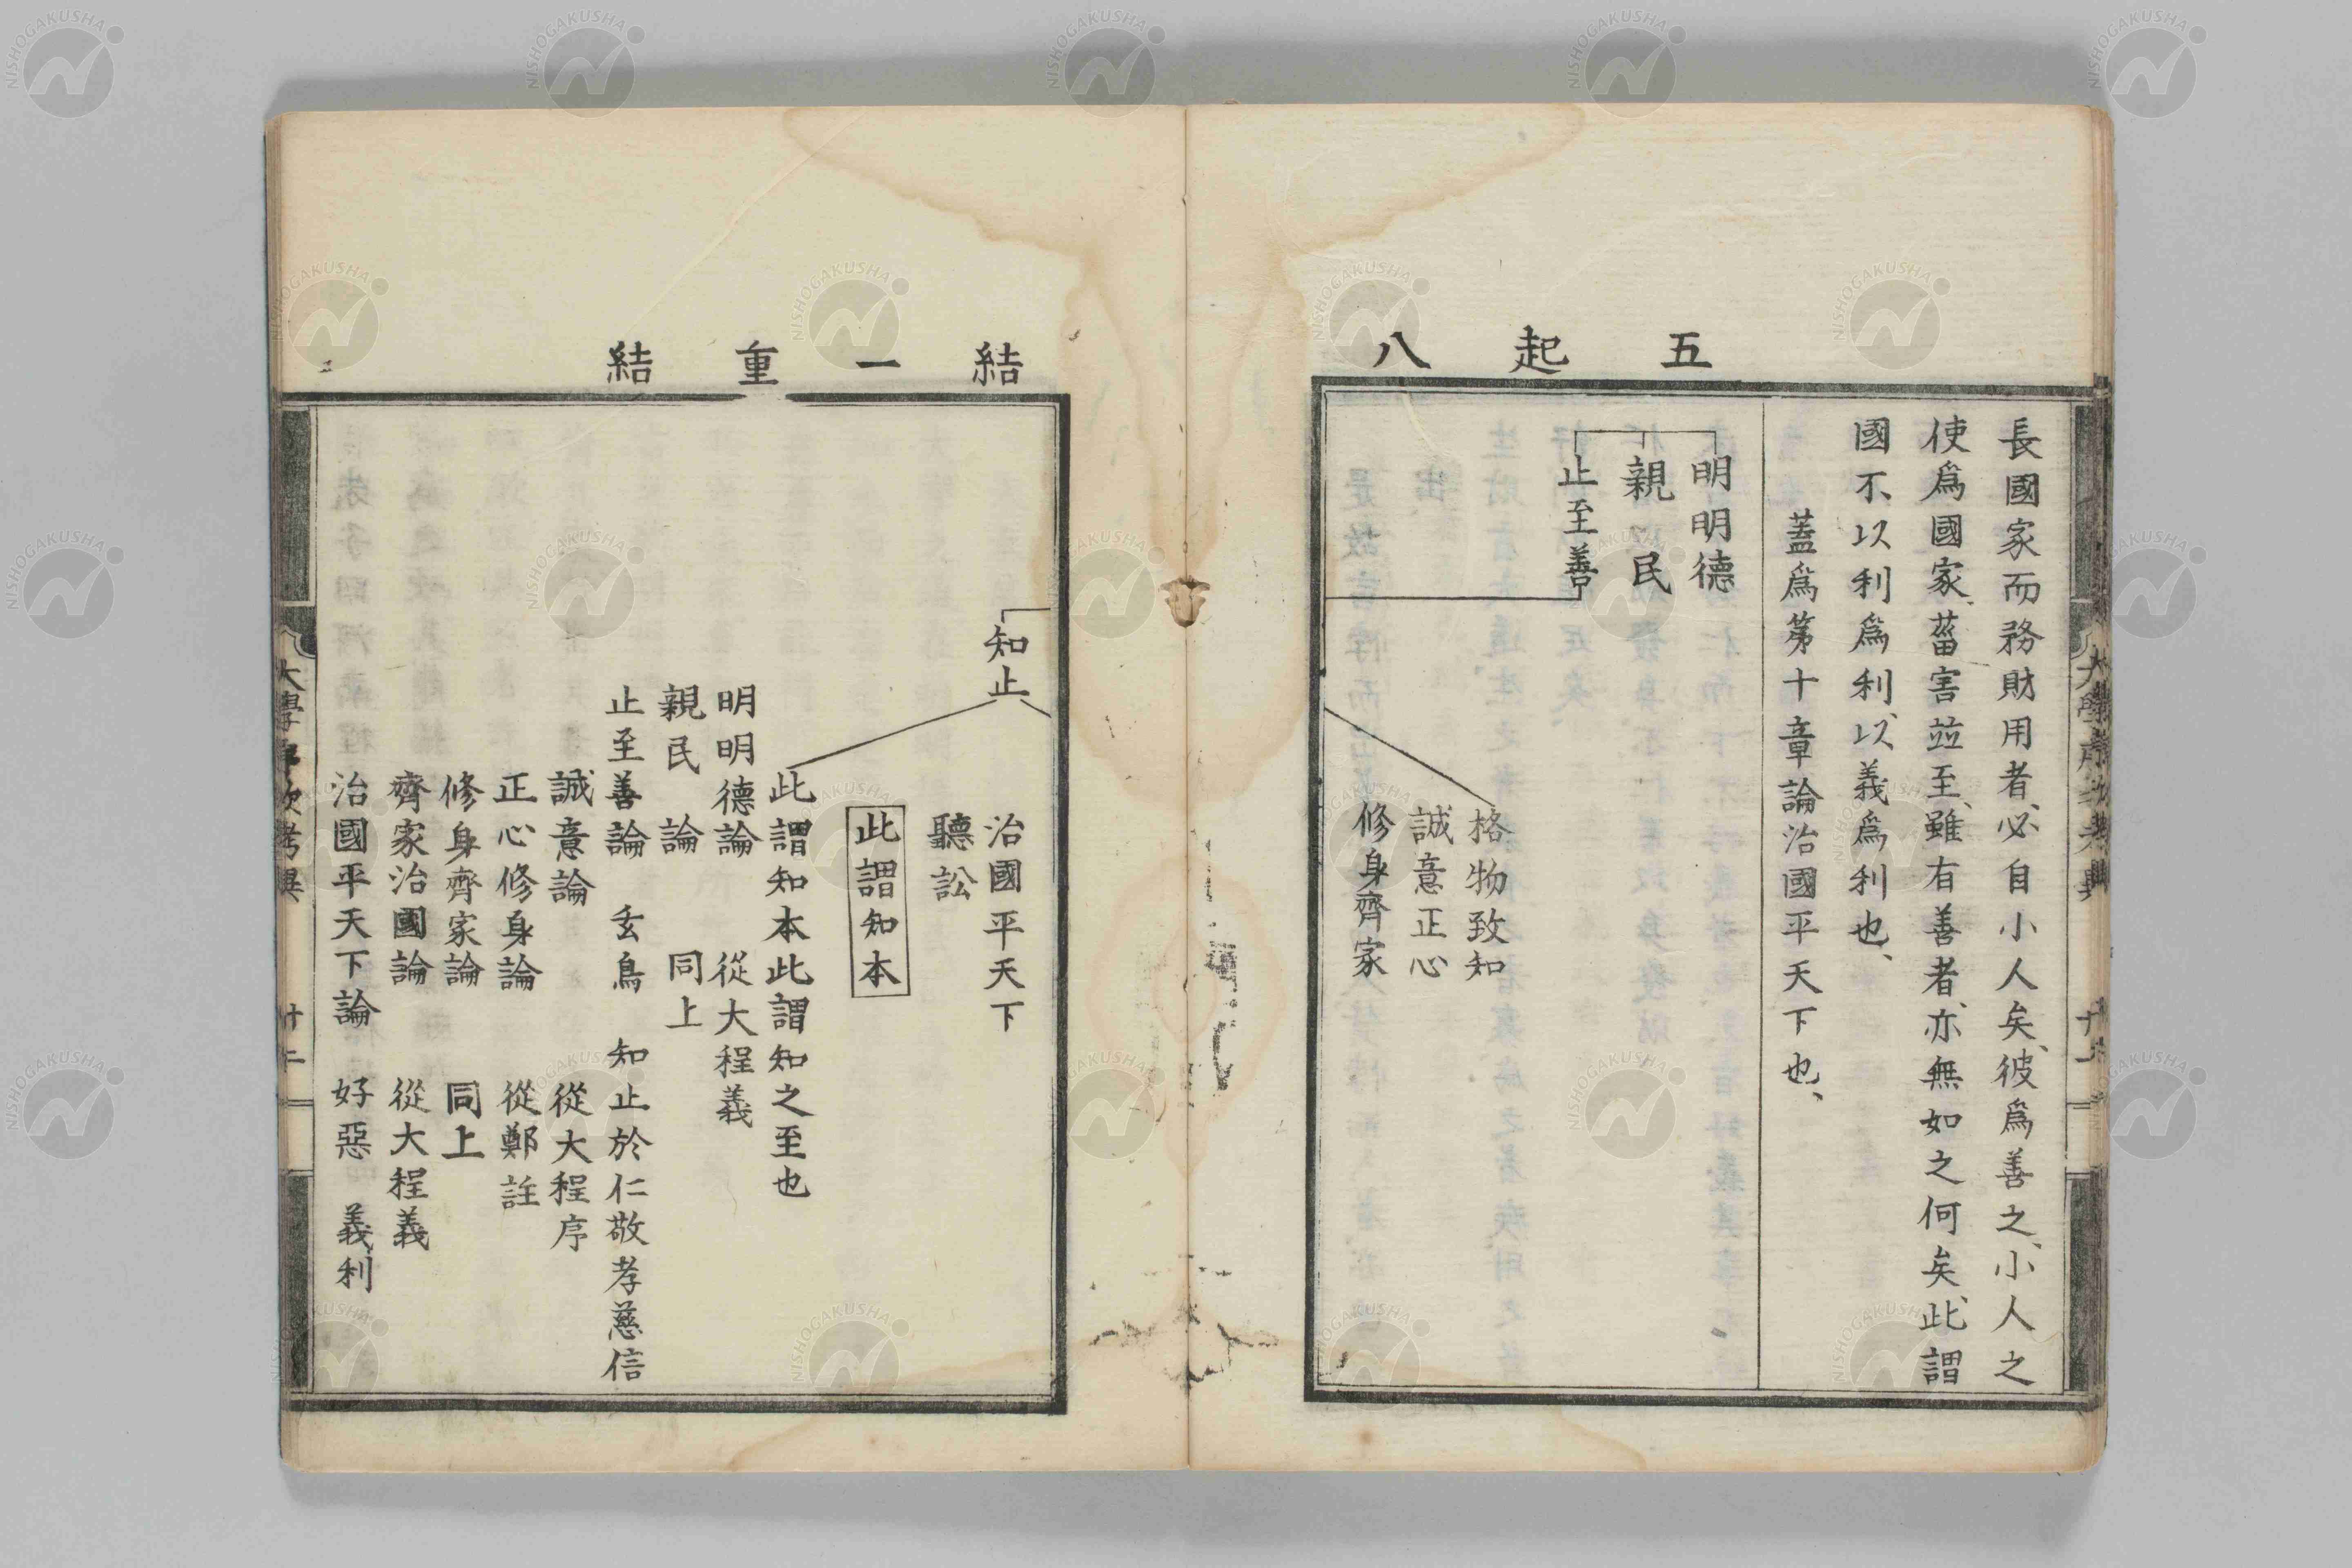 五起八
長國家而務財用者、必自小人矣、彼爲善之、小人之
使爲國家、菑害竝至、雖有善者、亦無如之何矣、此謂
國不以利爲利、以義爲利也、
蓋爲第十章論治國平天下也、
明明德
親民
止至善
格物致知
誠意正心
修身齊家
結一重結
知止
治國平天下
聽訟
此謂知本
此謂知本此謂知之至也
明明德論 從大程義
親民論 同上
止至善論 玄鳥 知止於仁敬孝慈信
誠意論 從大程序
正心修身論 從鄭註
修身齊家論 同上
齊家治國論 從大程義
治國平天下論 好惡 義利
NISHOGAKUSHA